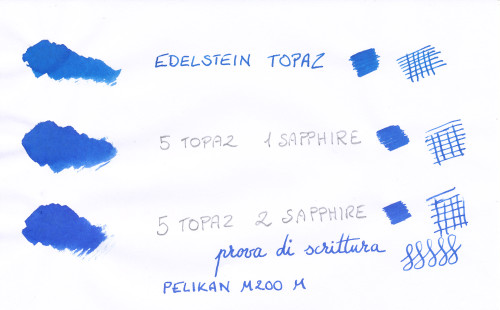 EDELSTEIN TOPAZ
5 TOPAZ 1 SAPPHIRE
5 TOPAZ 2 SAPPHIRE
prova di scrittura
PELIKAN M200 M